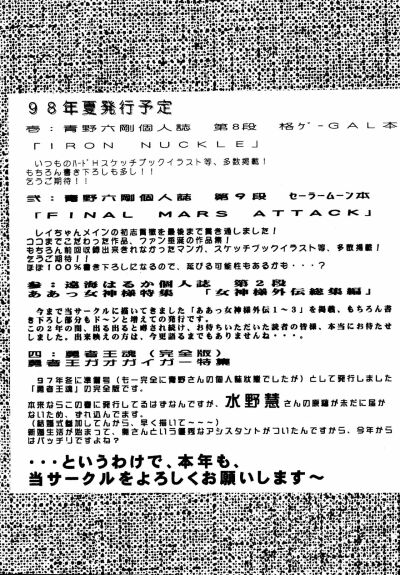 98年夏発行予定
壱：青野六剛個人誌　第8段　格ゲーGAL本
「IRON NUCKLE」
いつものハードHスケッチブックイラスト等、多数掲載！
もちろん書き下ろしも多し！！
乞うご期待！！
弐：青野六剛個人誌　第9段　セーラームーン本
「FINAL MARS ATTACK」
レイちゃんメインの初志貫徹を最後まで貫き通しました！
ココまでこだわった作品、ファン垂涎の作品集！
もちろん前回収録出来きれなかったマンガ、スケッチブックイラスト等、多数掲載！
乞うご期待！
ほぼ100％書き下ろしになるので、延びる可能性もあるかも・・・？
参：遠海はるか個人誌　第2段
ああっ女神様特集　「女神様外伝総集編」
今まで当サークルに描いてきました「ああっ女神様外伝1～3」を掲載、もちろん書き下ろし部分もドーンと増えての発行です。
この2年の間、出る出ると噂され続け、お待ちいただいた読者の皆様、本当にお待たせしました。出来映えの方は、今更語るまでもありませんね・・・。
四：勇者王魂（完全版）
勇者王ガオガイガー特集
97年冬に準備号（もー完全に青野さんの個人誌状態でしたが）として発行しました「勇者王魂」の完全版です。
本来ならこの書に発行してるはずなんですが、水野慧さんの原稿が未だに届かないため、ずれ込んでます。
（結婚式参加してんから、早く描いて～～）
新婚生活が始まって、奥さんという優秀なアシスタントがついたんですから、今年からはバッチリですよね？
・・・というわけで、本年も、
当サークルをよろしくお願いします～